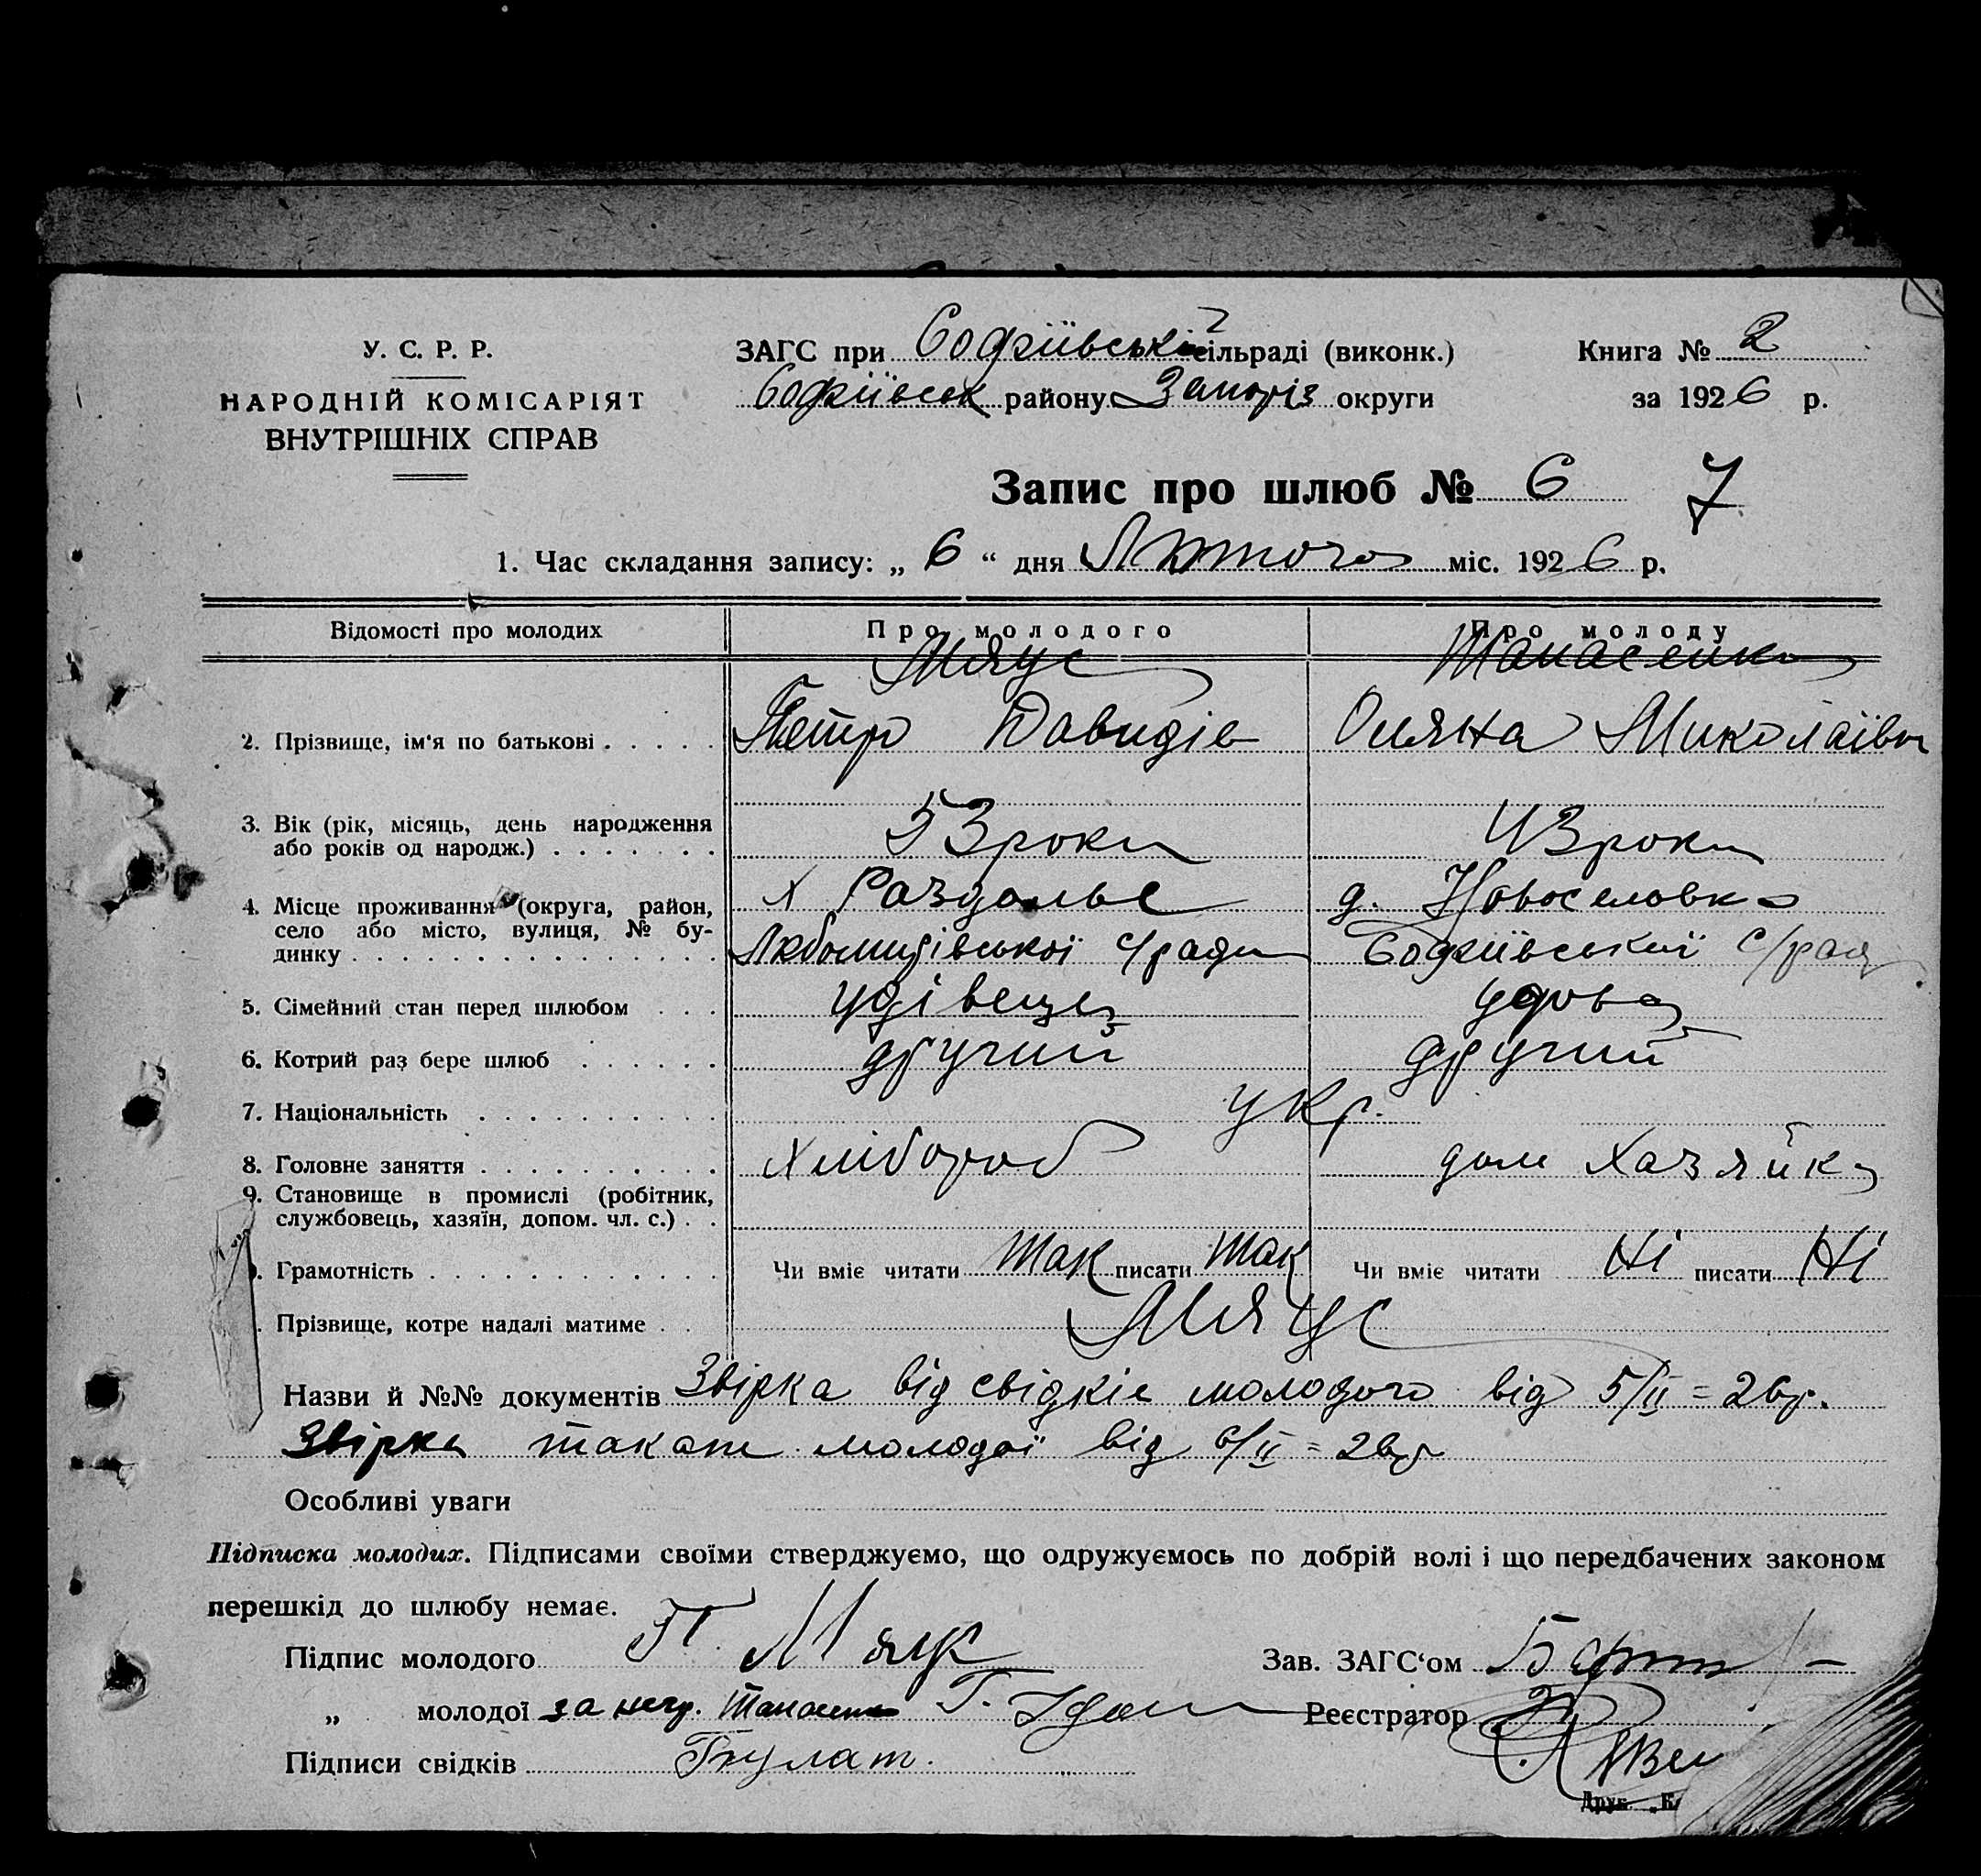 У. С. Р. Р.
НАРОДНІЙ КОМІСАРІЯТ
ВНУТРІШНІХ СПРАВ
ЗАГС при Софіївській сільраді (виконк.)
Софіївськ району Запоріз округи
Книга № 2
за 1926 р.
Запис про шлюб № 6 7
1. Час складання запису: „ 6 “ дня Лютого міс. 1926 р.
Відомості про молодих Про молодого Про молоду
Мяус Танасенко
2. Прізвище, ім'я по батькові Петро Давидів Оляна Миколаївн
3. Вік (рік, місяць, день народження
або років од народж.) 53 роки 43 роки
4. Місце проживання (округа, район, х Раздолье д. Новоселовка
село або місто, вулиця, № бу-
динку Любомирівської с/ради Софіївської с/рад
5. Сімейний стан перед шлюбом удівець удова
6. Котрий раз бере шлюб другий другий
7. Національність укр.
8. Головне заняття Хлібороб дом Хазяйка
9. Становище в промислі (робітник,
службовець, хазяїн, допом. чл. с.)
Грамотність Чи вміє читати Так писати Так Чи вміє читати Ні писати Ні
Прізвище, котре надалі матиме Мяус
Назви й №№ документів Звірка від свідків молодого від 5/II = 26 р.
Звірка також молодої від 6/II = 26 р
Особливі уваги
Підписка молодих. Підписами своїми стверджуємо, що одружуємось по добрій волі і що передбачених законом
перешкід до шлюбу немає.
Підпис молодого П. Мяус
Зав. ЗАГС‘ом
„ молодої за негр. Танасенко Г.
Реєстратор
Підписи свідків
Друк. „К